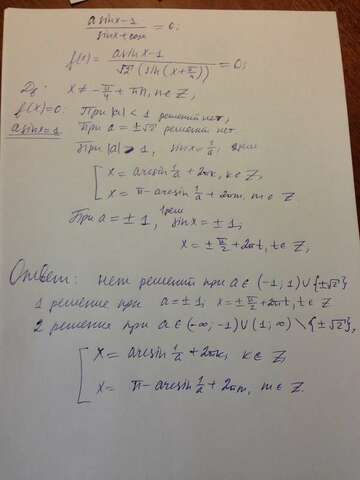 a sinx-1 / sinx+cosx = 0;
f(x) = a sinx-1 / √2 (sin(x+π/4)) = 0;
D_f: x ≠ -π/4 + πn, n ∈ Z,
f(x)=0: При |a| < 1 решений нет,
a sinx=1, При a = ±√2 решений нет
При |a| > 1, sinx = 1/a, 2 реш
[ x = arcsin 1/a + 2πk, k ∈ Z,
x = π - arcsin 1/a + 2πm, m ∈ Z
При a = ±1, 1 реш sinx = ±1;
x = ±π/2 + 2πt, t ∈ Z,
Ответ: нет решений при a ∈ (-1; 1) ∪ {±√2}
1 решение при a = ±1; x = ±π/2 + 2πt, t ∈ Z
2 решения при a ∈ (-∞; -1) ∪ (1; ∞) \ {±√2},
[ x = arcsin 1/a + 2πk, k ∈ Z,
x = π - arcsin 1/a + 2πm, m ∈ Z.